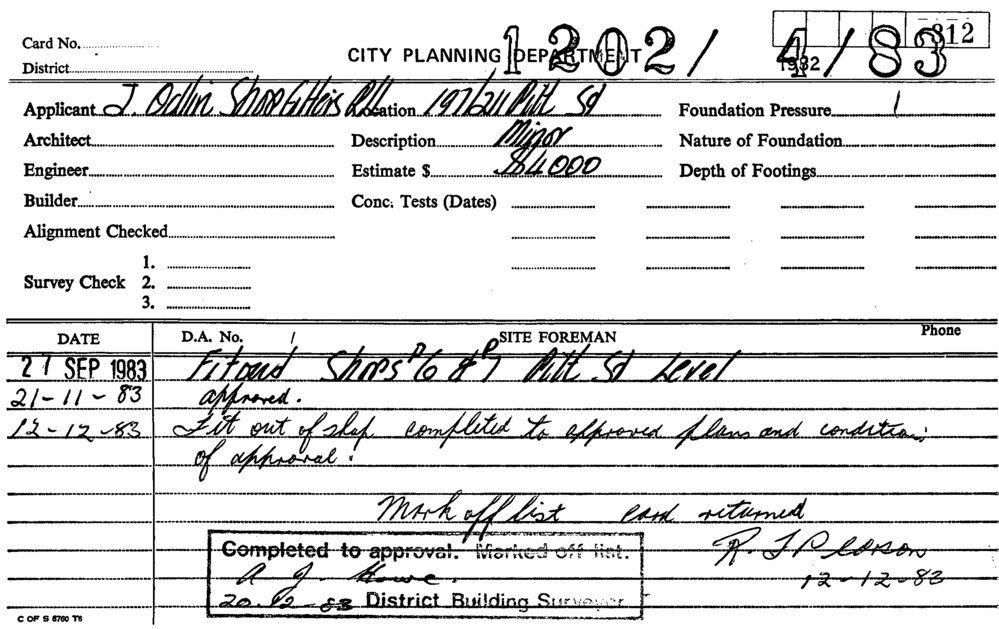 Card No.
CITY PLANNING DEPARTMENT 1202/4/83 812
District 1982
Applicant J. Odlin Shopfitters P/L Location 197/211 Pitt St Foundation Pressure
Architect Description Minor Nature of Foundation
Engineer Estimate $ $4000 Depth of Footings
Builder Conc. Tests (Dates)
Alignment Checked
1.
Survey Check 2.
3.
DATE D.A. No. SITE FOREMAN Phone
27 SEP 1983 Fitout Shops P6 & P7 Pitt St Level
21-11-83 approved.
12-12-83 Fit out of shop completed to approved plans and conditions
of approval.
Mark off list card returned
Completed to approval. Marked off list. R. J Pearson
A J. Howe. 12-12-83
20.12-83 District Building Surveyor
C OF S 6760 T6